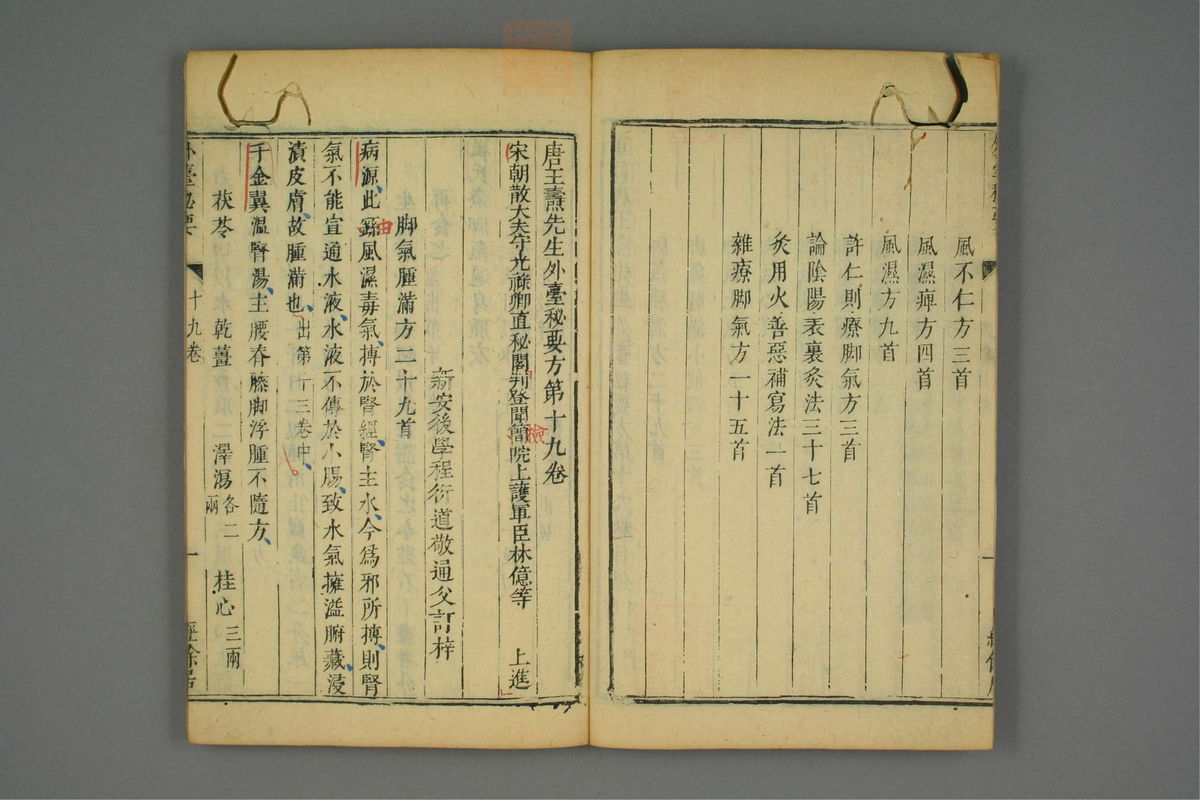 風不仁方三首
風濕痺方四首
風濕方九首
許仁則療脚氣方三首
論陰陽表裏灸法三十七首
灸用火善惡補寫法一首
雜療脚氣方一十五首
唐王燾先生外臺秘要方第十九卷
宋朝散大夫守光祿卿直秘閣判登聞簡院上護軍臣林億等 上進
檢
新安後學程衍道敬通父訂梓
脚氣腫滿方二十九首
病源、此繇風濕毒氣、搏於腎經、腎主水、今爲邪所搏、則腎
由
氣不能宣通水液、水液不傳於小腸、致水氣擁溢腑藏、浸
漬皮膚、故腫滿也、出第十三卷中、
千金翼溫腎湯、主腰脊膝脚浮腫不隨方、
茯苓 乾薑 澤瀉各二兩 桂心三兩
外臺秘要 十九卷 一 經餘居